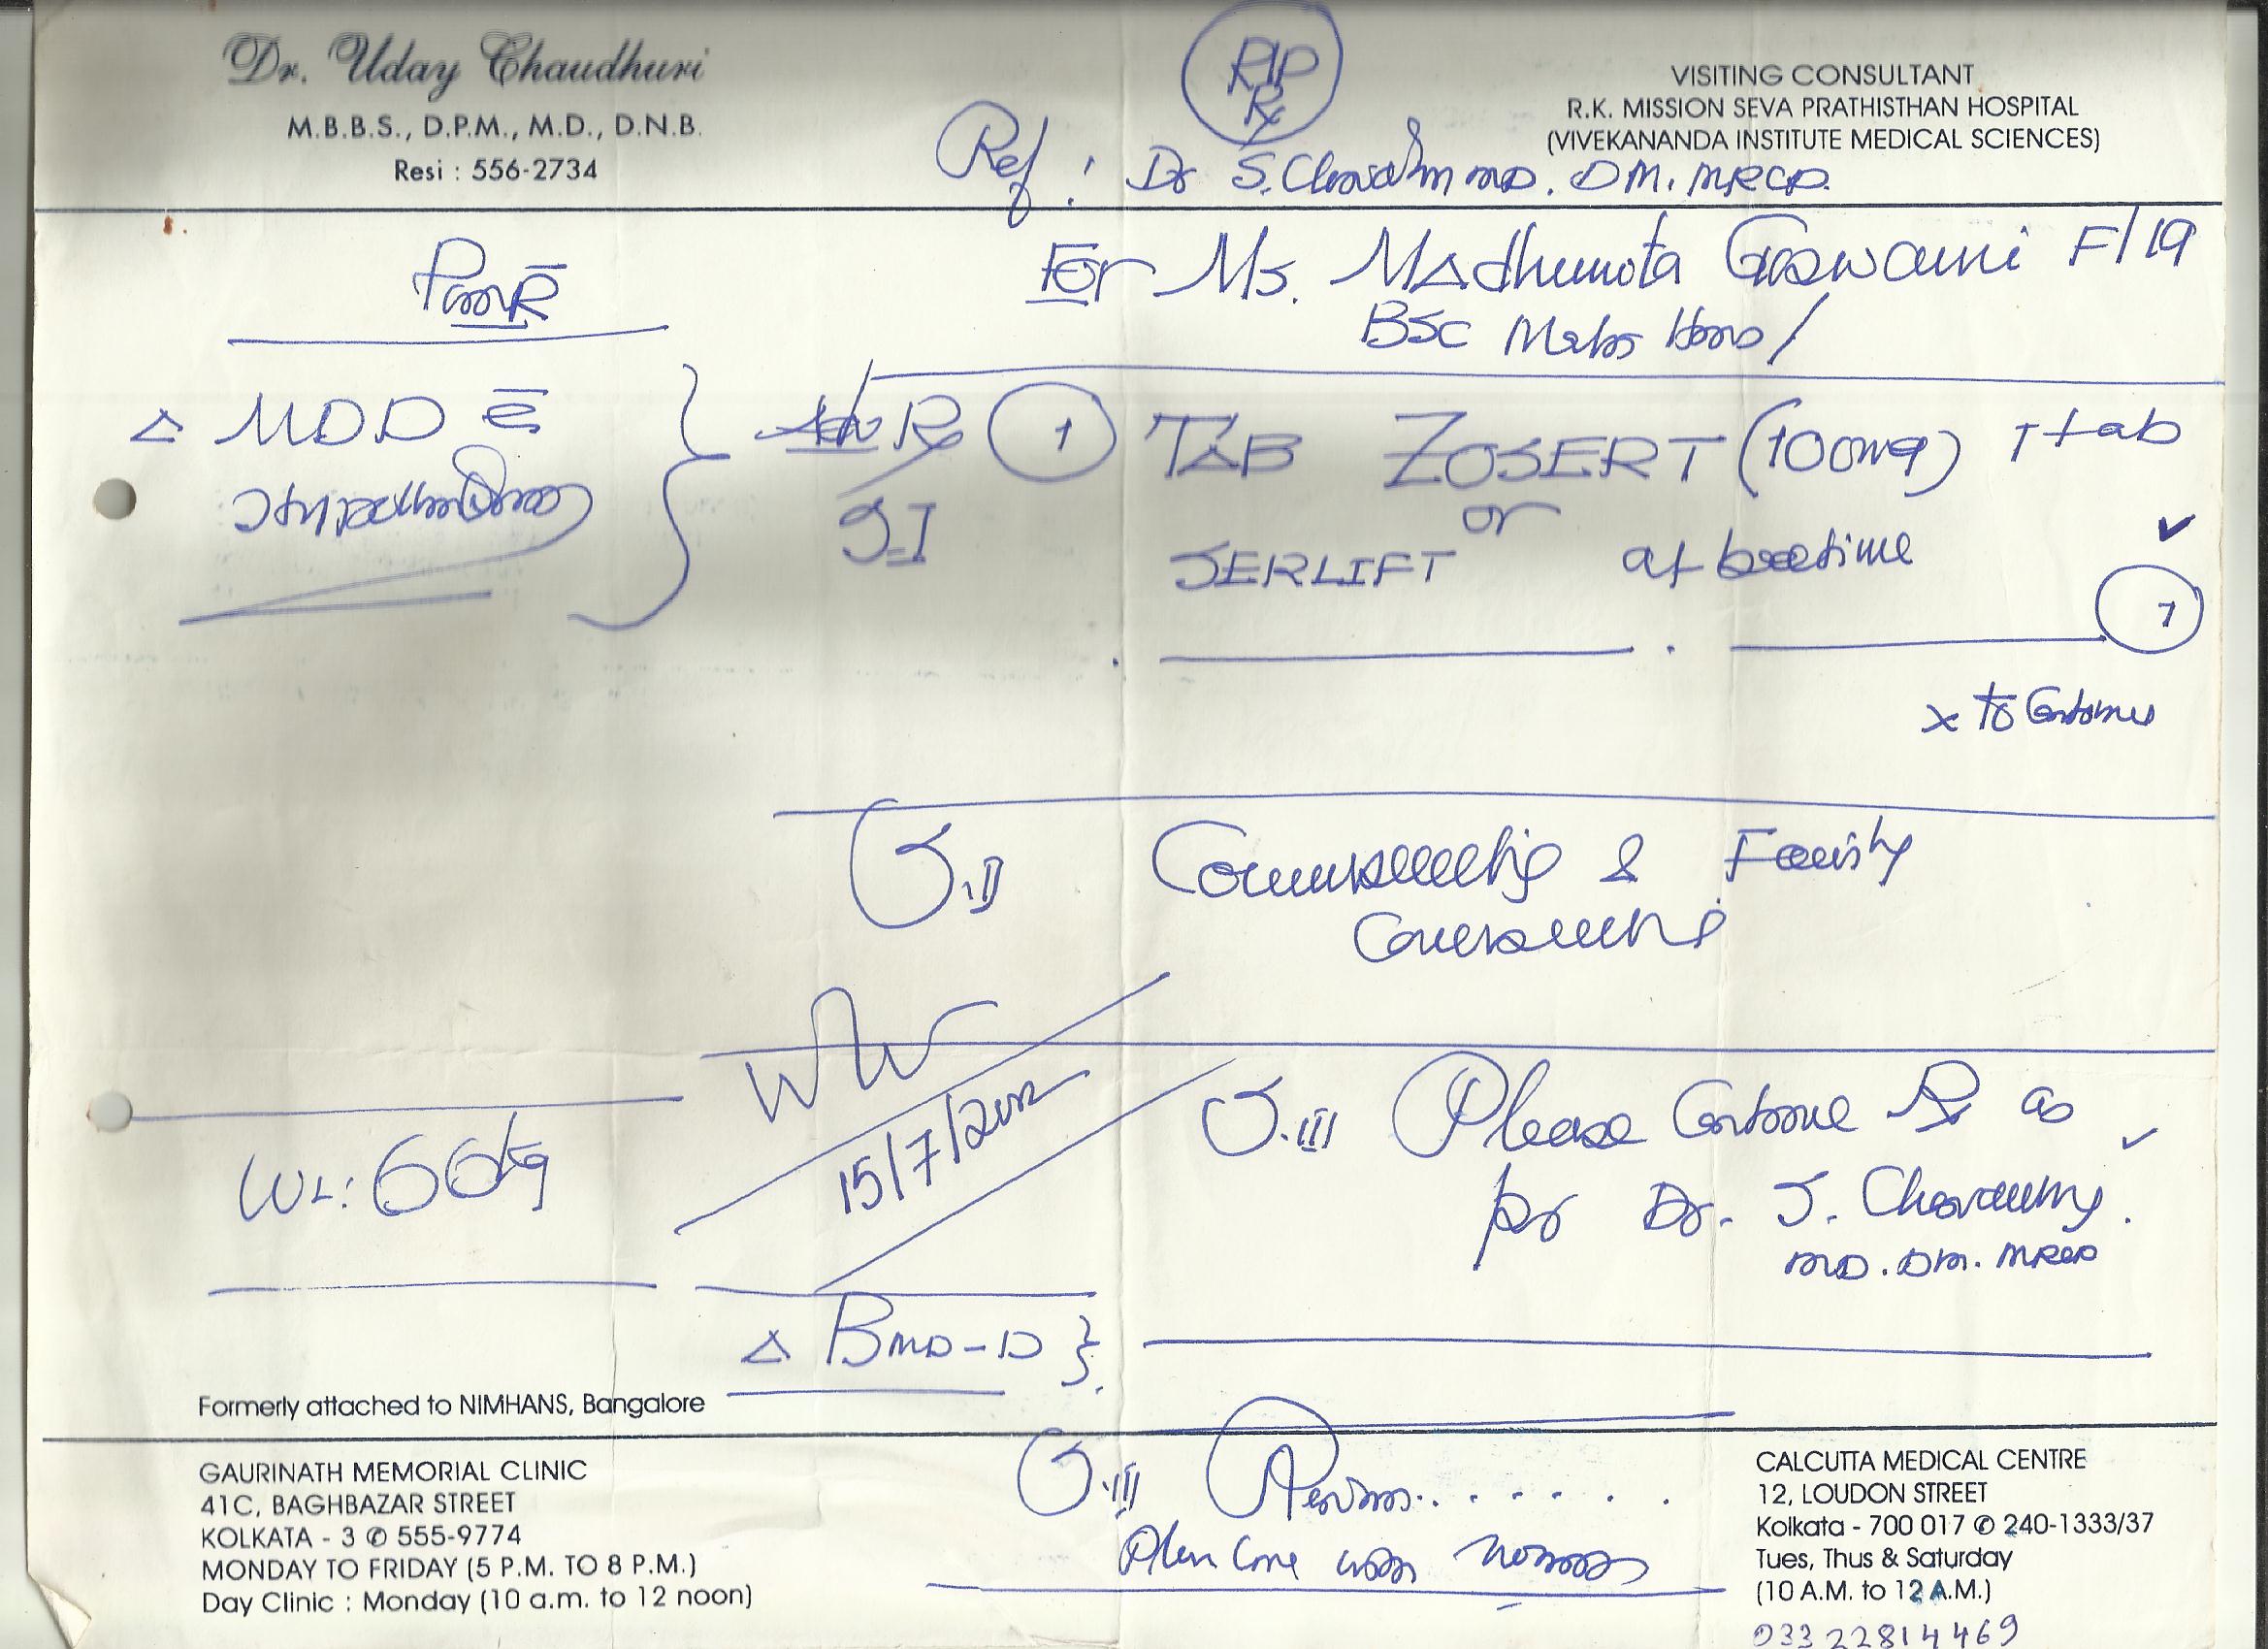 Dr. Uday Chaudhuri
M.B.B.S., D.P.M., M.D., D.N.B.
Resi : 556-2734
Rx
VISITING CONSULTANT
R.K. MISSION SEVA PRATHISTHAN HOSPITAL
(VIVEKANANDA INSTITUTE MEDICAL SCIENCES)
Ref : Dr S. MD. DM. MRCP.
For Ms. Goswami F/19
BSc Hons/
Δ MDD c̄
Rx ① TAB ZOSERT (100mg) 1 tab
or
SERLIFT at bedtime
①
x to Continue
Counselling & Family
Counselling
15/7/2012
Wt: 66kg
III Please Continue Rx as
per Dr. S.
MD. DM. MRCP
Δ BMD-D
Formerly attached to NIMHANS, Bangalore
GAURINATH MEMORIAL CLINIC
41C, BAGHBAZAR STREET
KOLKATA - 3 ✆ 555-9774
MONDAY TO FRIDAY (5 P.M. TO 8 P.M.)
Day Clinic : Monday (10 a.m. to 12 noon)
III
CALCUTTA MEDICAL CENTRE
12, LOUDON STREET
Kolkata - 700 017 ✆ 240-1333/37
Tues, Thus & Saturday
(10 A.M. to 12 A.M.)
033 22814469